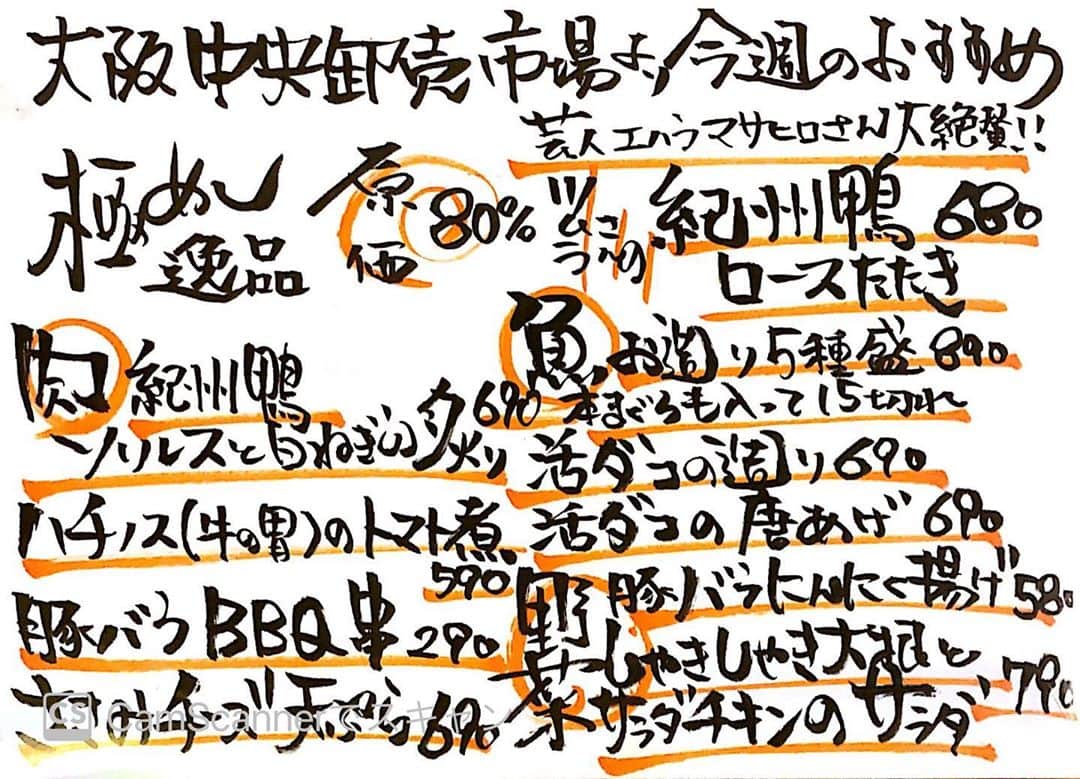 大阪中央卸売市場より今週のおすすめ
芸人エハラマサヒロさん大絶賛!!
極めし
逸品
原価
80%
肉 紀州鴨
ソリレスと白ねぎの炙り 690
ハチノス(牛の胃)のトマト煮
590
豚バラBBQ串 290
チーズ天ぷら 690
ツムラさんの
紀州鴨 680
ロースたたき
魚 お造り5種盛 890
本まぐろも入って15切れ
活ダコの造り 690
活ダコの唐あげ 690
野菜
豚バラにんにく揚げ 580
しゃきしゃき大根と
サラダチキンのサラダ 790
CS CamScannerでスキャン